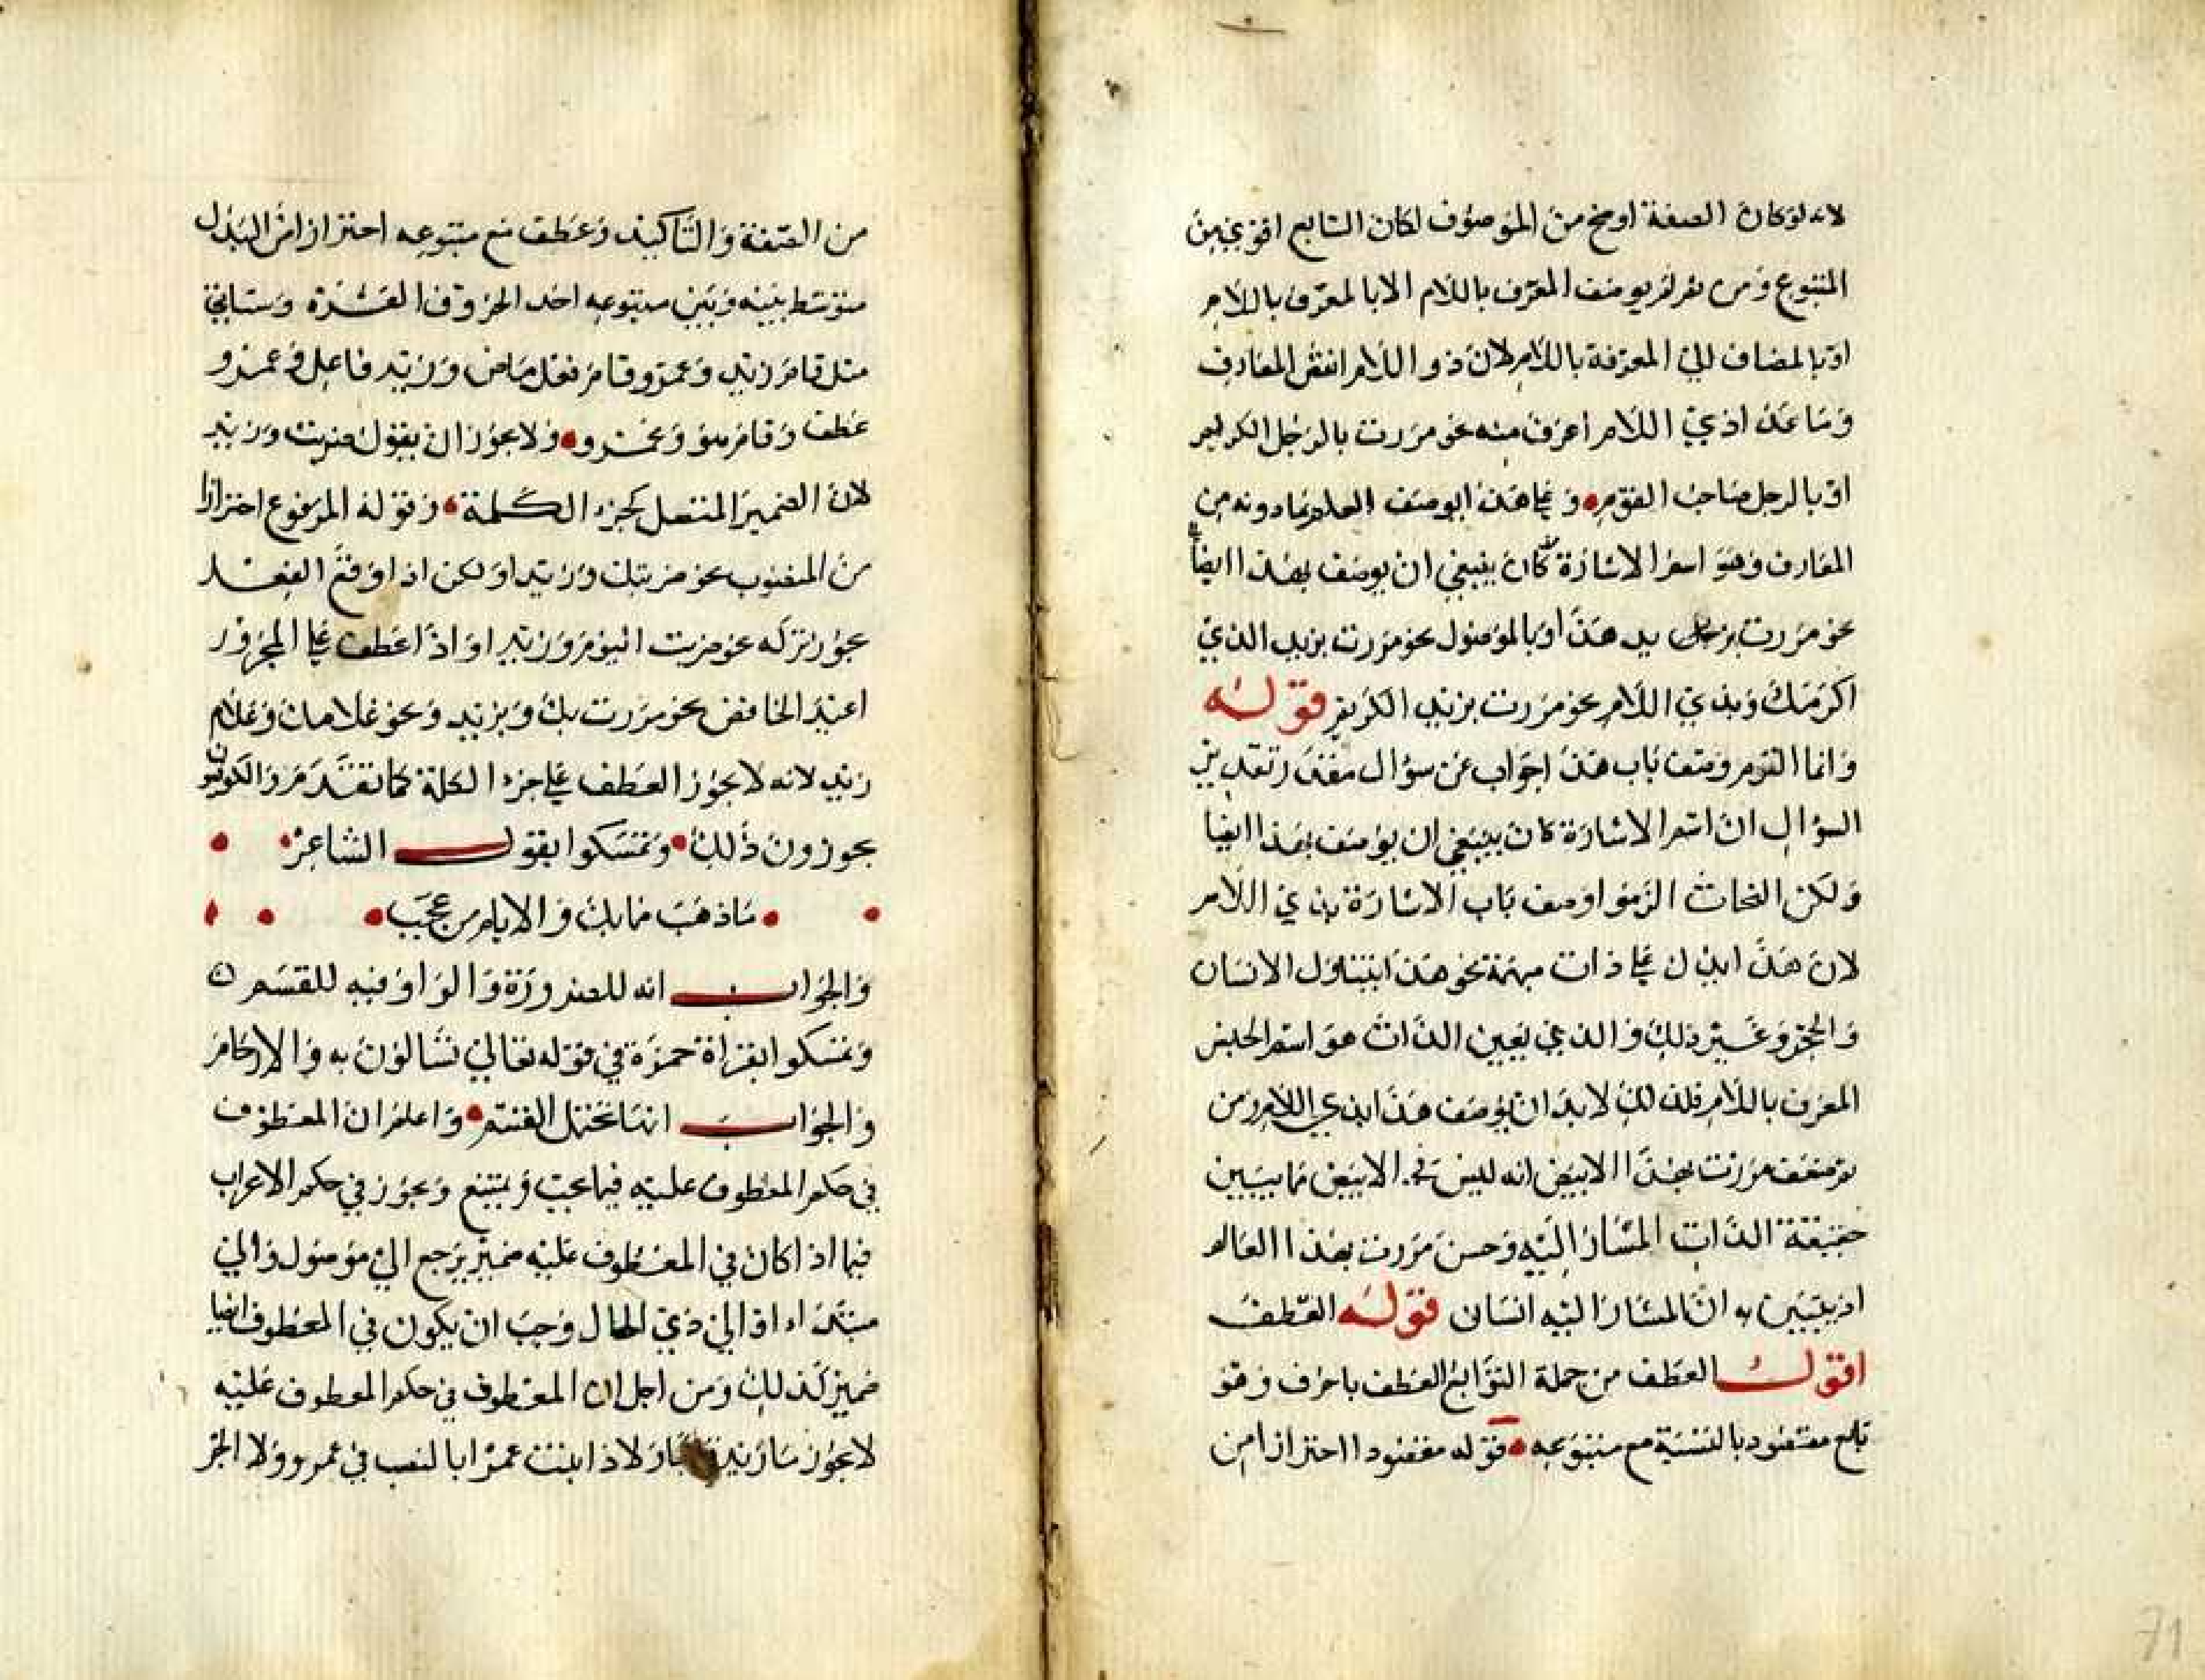 لانه لو كان الصفة اوضح من الموصوف لكان التابع اقوي من
المتبوع ومن ثم لم يوصف المعرف باللام الا بالمعرف باللام
او بالمضاف الي المعرفة باللام لان ذو اللام انقص المعارف
وما عدا ذي اللام اعرف منه نحو مررت بالرجل الكريم
او بالرجل صاحب القوم وعلي هذا يوصف العلم بما دونه من
المعارف وهو اسم الاشارة كان ينبغي ان يوصف بهذا ايضا
نحو مررت بزيد هذا او بالموصول نحو مررت بزيد الذي
اكرمك وبذي اللام نحو مررت بزيد الكريم قوله
وانما التزم وصف باب هذا جواب عن سؤال مقدر تقدير
السؤال ان اسم الاشارة كان ينبغي ان يوصف بهذا ايضا
ولكن النحات الزموا وصف باب الاشارة بذي اللام
لان هذا يدل علي ذات مبهمة نحو هذا يتناول الانسان
والحجر وغير ذلك والذي يعين الذات هو اسم الجنس
المعرف باللام فلذلك لا بد ان يوصف هذا بذي اللام ومن
ثم ضعف مررت بهذا الابيض انه ليس في الابيض ما يبين
حقيقة الذات المشار اليه وحسن مررت بهذا العالم
اذ يتبين به ان المشار اليه انسان قوله العطف
اقول العطف من جملة التوابع العطف باحرف وهو
تابع مقصود بالنسبة مع متبوعه قوله مقصود احتراز امن
من الصفة والتاكيد وعطف مع متبوعه احتراز امن البدل
متوسط بينه وبين متبوعه احد الحروف العشرة وستاتي
مثل قام زيد وعمرو وقام فعل ماض وزيد فاعل وعمرو
عطف وقام هو وعمرو ولا يجوز ان يقول ضربت وزيد
لان الضمير المتصل كجزء الكلمة وقوله المرفوع احترازا
من المنصوب نحو ضربتك وزيدا ولكن اذا وقع الفصل
يجوز تركه نحو ضربت اليوم وزيد او اذا عطف علي المجرور
اعيد الخافض نحو مررت بك وبزيد ونحو غلامك وغلام
زيد لانه لا يجوز العطف علي جزء الكلمة كما تقدم والكوفيون
يجوزون ذلك وتمسكوا بقول الشاعر
ماذهب مابك والايام من عجب
والجواب انه للضرورة والواو فيه للقسم
وتمسكوا بقراة حمزة في قوله تعالي تسالون به والارحام
والجواب انها تحتمل القسم واعلم ان المعطوف
في حكم المعطوف عليه فيما يجب ويمتنع ويجوز في حكم الاعراب
فيما اذا كان في المعطوف عليه ضمير يرجع الي موصول والي
مبتداء او الي ذي الحال وجب ان يكون في المعطوف ايضا
ضمير كذلك ومن اجل ان المعطوف في حكم المعطوف عليه
لا يجوز ما زيد ولا ذاهبت عمرا بالنصب في عمرو ولا الجر